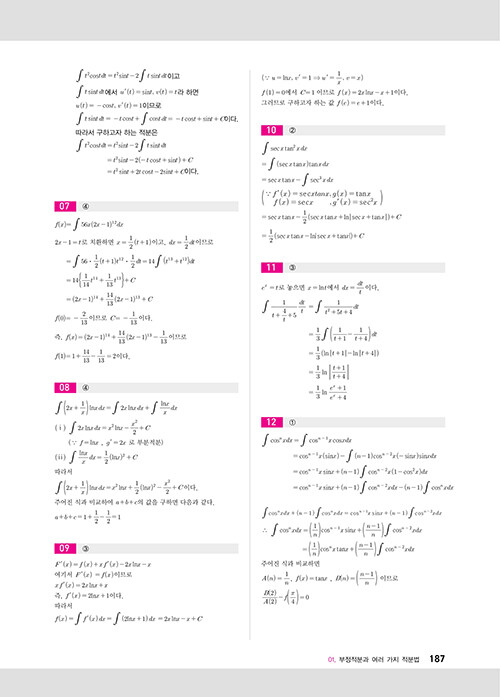 ∫t²costdt=t²sint−2∫t sintdt이고
∫t sintdt에서 u′(t)=sint, v(t)=t라 하면
u(t)=−cost, v′(t)=1이므로
∫t sintdt=−tcost+∫costdt=−tcost+sint+C이다.
따라서 구하고자 하는 적분은
∫t²costdt=t²sint−2∫t sintdt
=t²sint−2(−tcost+sint)+C
=t²sint+2tcost−2sint+C이다.
07 ④
f(x)=∫56x(2x−1)¹²dx
2x−1=t로 치환하면 x=1/2(t+1)이고, dx=1/2dt이므로
=∫56·1/2(t+1)t¹²·1/2dt=14∫(t¹³+t¹²)dt
=14{1/14t¹⁴+1/13t¹³}+C
=(2x−1)¹⁴+14/13(2x−1)¹³+C
f(0)=−2/13이므로 C=−1/13이다.
즉, f(x)=(2x−1)¹⁴+14/13(2x−1)¹³−1/13이므로
f(1)=1+14/13−1/13=2이다.
08 ④
∫(2x+1/x)lnxdx=∫2xlnxdx+∫lnx/x dx
(ⅰ) ∫2xlnxdx=x²lnx−x²/2+C
(∵ f=lnx, g′=2x 로 부분적분)
(ⅱ) ∫lnx/x dx=1/2(lnx)²+C
따라서
∫(2x+1/x)lnxdx=x²lnx+1/2(lnx)²−x²/2+C이다.
주어진 식과 비교하여 a+b+c의 값을 구하면 다음과 같다.
a+b+c=1+1/2−1/2=1
09 ③
F′(x)=f(x)+xf′(x)−2xlnx−x
여기서 F′(x)=f(x)이므로
xf′(x)=2xlnx+x
즉, f′(x)=2lnx+1이다.
따라서
f(x)=∫f′(x)dx=∫(2lnx+1)dx=2xlnx−x+C
(∵ u=lnx, v′=1⇒u′=1/x, v=x)
f(1)=0에서 C=1 이므로 f(x)=2xlnx−x+1이다.
그러므로 구하고자 하는 값 f(e)=e+1이다.
10 ②
∫secxtan²xdx
=∫(secxtanx)tanxdx
=secxtanx−∫sec³xdx
(∵ f′(x)=secxtanx, g(x)=tanx
f(x)=secx , g′(x)=sec²x)
=secxtanx−1/2(secxtanx+ln|secx+tanx|)+C
=1/2(secxtanx−ln|secx+tanx|)+C
11 ③
eˣ=t로 놓으면 x=lnt에서 dx=dt/t이다.
∫1/(t+4/t+5) dt/t=∫1/(t²+5t+4)dt
=1/3∫(1/(t+1)−1/(t+4))dt
=1/3{ln|t+1|−ln|t+4|}
=1/3 ln|(t+1)/(t+4)|
=1/3 ln (eˣ+1)/(eˣ+4)
12 ①
∫cosⁿxdx=∫cosⁿ⁻¹xcosxdx
=cosⁿ⁻¹x(sinx)−∫(n−1)cosⁿ⁻²x(−sinx)sinxdx
=cosⁿ⁻¹xsinx+(n−1)∫cosⁿ⁻²x(1−cos²x)dx
=cosⁿ⁻¹xsinx+(n−1)∫cosⁿ⁻²xdx−(n−1)∫cosⁿxdx
∫cosⁿxdx+(n−1)∫cosⁿxdx=cosⁿ⁻¹xsinx+(n−1)∫cosⁿ⁻²xdx
∴ ∫cosⁿxdx=(1/n)cosⁿ⁻¹xsinx+((n−1)/n)∫cosⁿ⁻²xdx
=(1/n)cosⁿxtanx+((n−1)/n)∫cosⁿ⁻²xdx
주어진 식과 비교하면
A(n)=1/n, f(x)=tanx, B(n)=((n−1)/n) 이므로
B(2)/A(2)−f(π/4)=0
01. 부정적분과 여러 가지 적분법 187